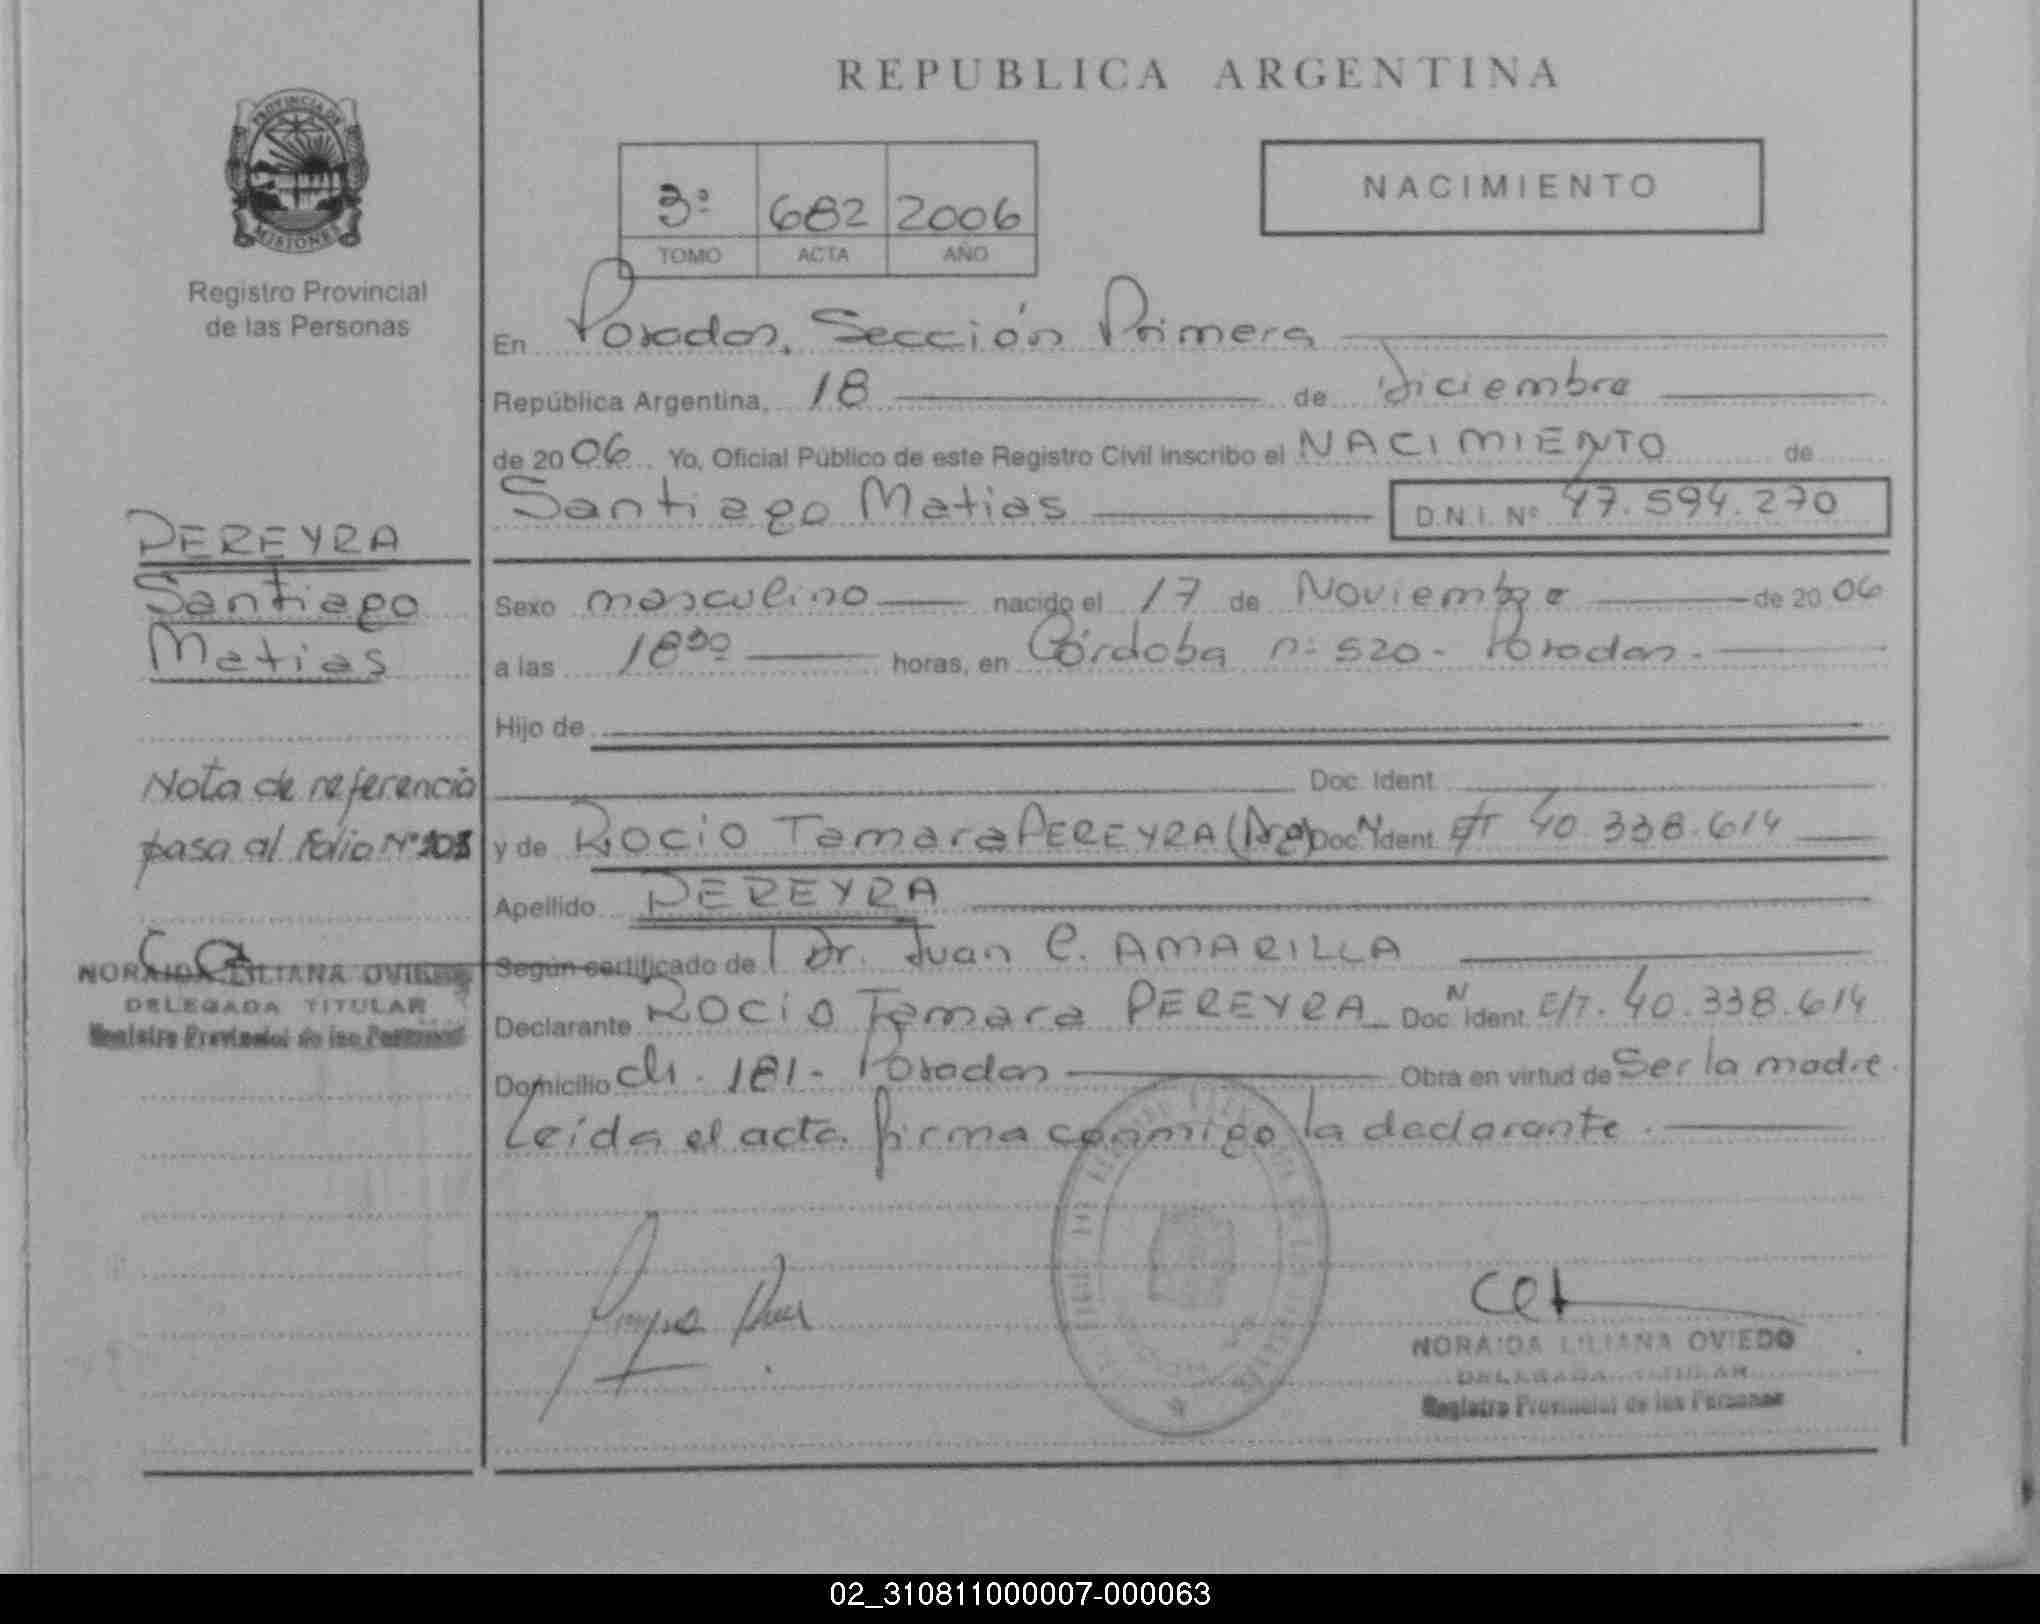 REPUBLICA ARGENTINA
PROVINCIA DE
MISIONES
Registro Provincial
de las Personas
3º 682 2006
TOMO ACTA AÑO
NACIMIENTO
En Posadas, Sección Primera
República Argentina, 18 de diciembre
de 2006 Yo, Oficial Público de este Registro Civil inscribo el NACIMIENTO de
Santiago Matias D.N.I. Nº 47.594.270
PEREYRA
Santiago
Matias
Sexo masculino nacido el 17 de Noviembre de 2006
a las 18³⁰ horas, en Córdoba nº 520 - Posadas.
Hijo de
Doc. Ident.
y de Rocio Tamara PEREYRA (Arg) Doc. N Ident. E/T 40.338.614
Apellido PEREYRA
Según certificado de Dr. Juan C. AMARILLA
Declarante Rocio Tamara PEREYRA Doc N Ident. E/T. 40.338.614
Domicilio ch. 181 - Posadas Obra en virtud de Ser la madre.
Leída el acta firma conmigo la declarante.
Nota de referencia
pasa al folio Nº
NORAIDA LILIANA OVIEDO
DELEGADA TITULAR
Registro Provincial de las Personas
NORAIDA LILIANA OVIEDO
DELEGADA TITULAR
Registro Provincial de las Personas
02_310811000007-000063